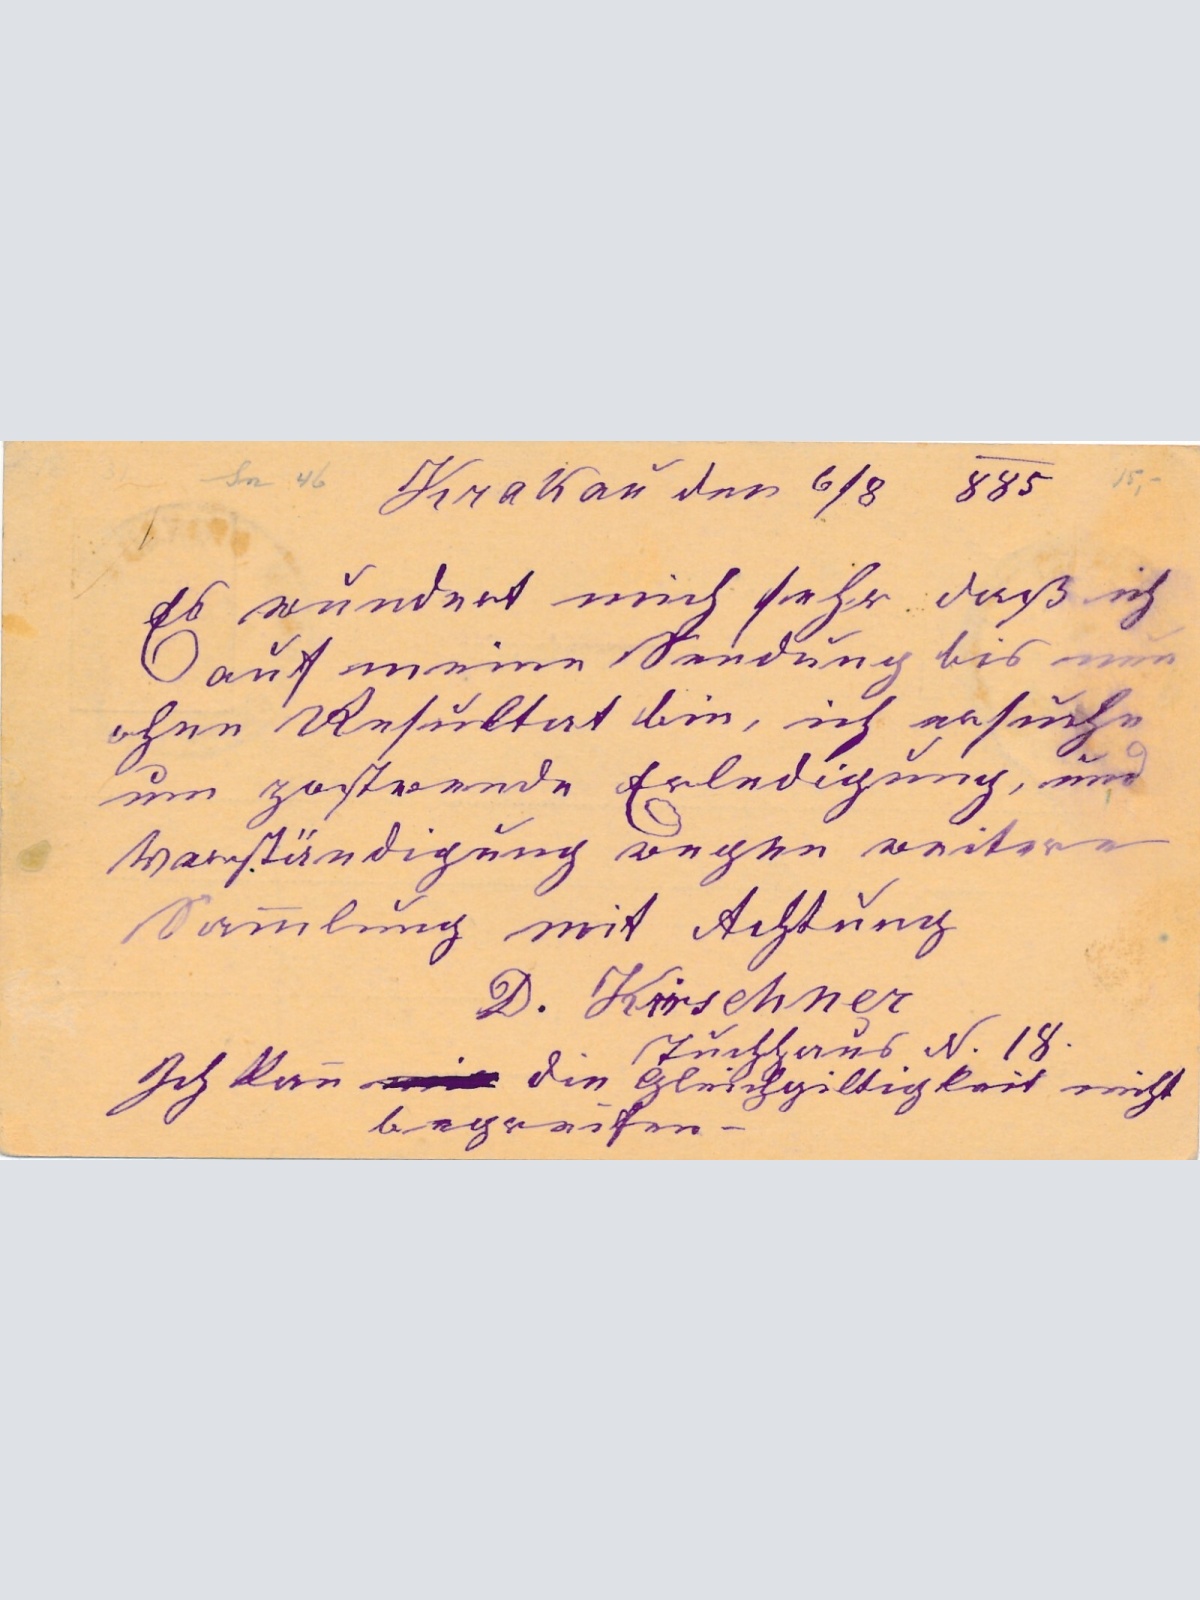 Krakau den 6/8 885
15,-
Es wundert mich sehr daß ich
auf meine Sendung bis nun
ohne Resultat bin, ich ersuche
um postwende Erledigung, und
Verständigung wegen weitere
Sam̄lung mit Achtung
D. Kirschner
Tuchhaus N. 18.
Ich kan̄ die Gleichgiltigkeit nicht
begreifen -